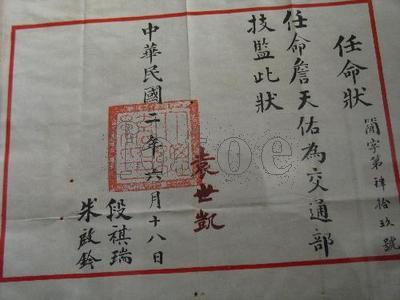 任命狀
簡字第肆拾玖號
任命詹天佑為交通部
技監此狀
袁世凱
中華民國二年六月十八日
段祺瑞
朱啟鈐